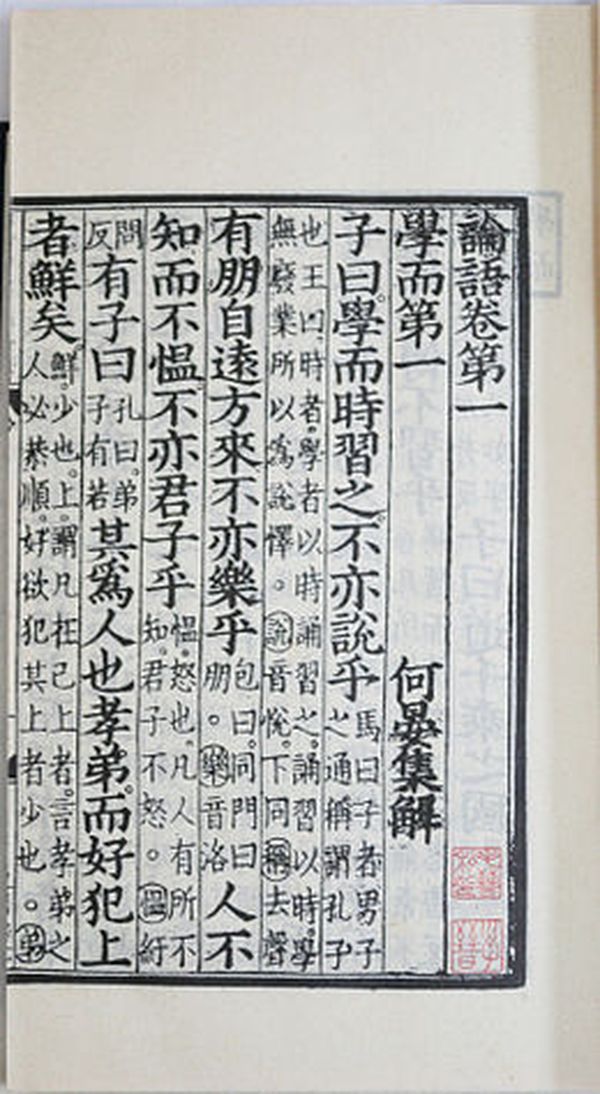 論語卷第一
學而第一 何晏集解
子曰學而時習之不亦說乎 馬曰子者男子
之通稱謂孔子
也王曰時者學者以時誦習之誦習以時學
無廢業所以爲說懌。說音悅下同稱去聲
有朋自遠方來不亦樂乎 包曰同門曰
朋。樂音洛 人不
知而不慍不亦君子乎 慍怒也凡人有所不
知君子不怒。慍紆
問
反 有子曰 孔曰弟
子有若 其爲人也孝弟而好犯上
者鮮矣 鮮少也上謂凡在己上者言孝弟之
人必恭順好欲犯其上者少也。弟